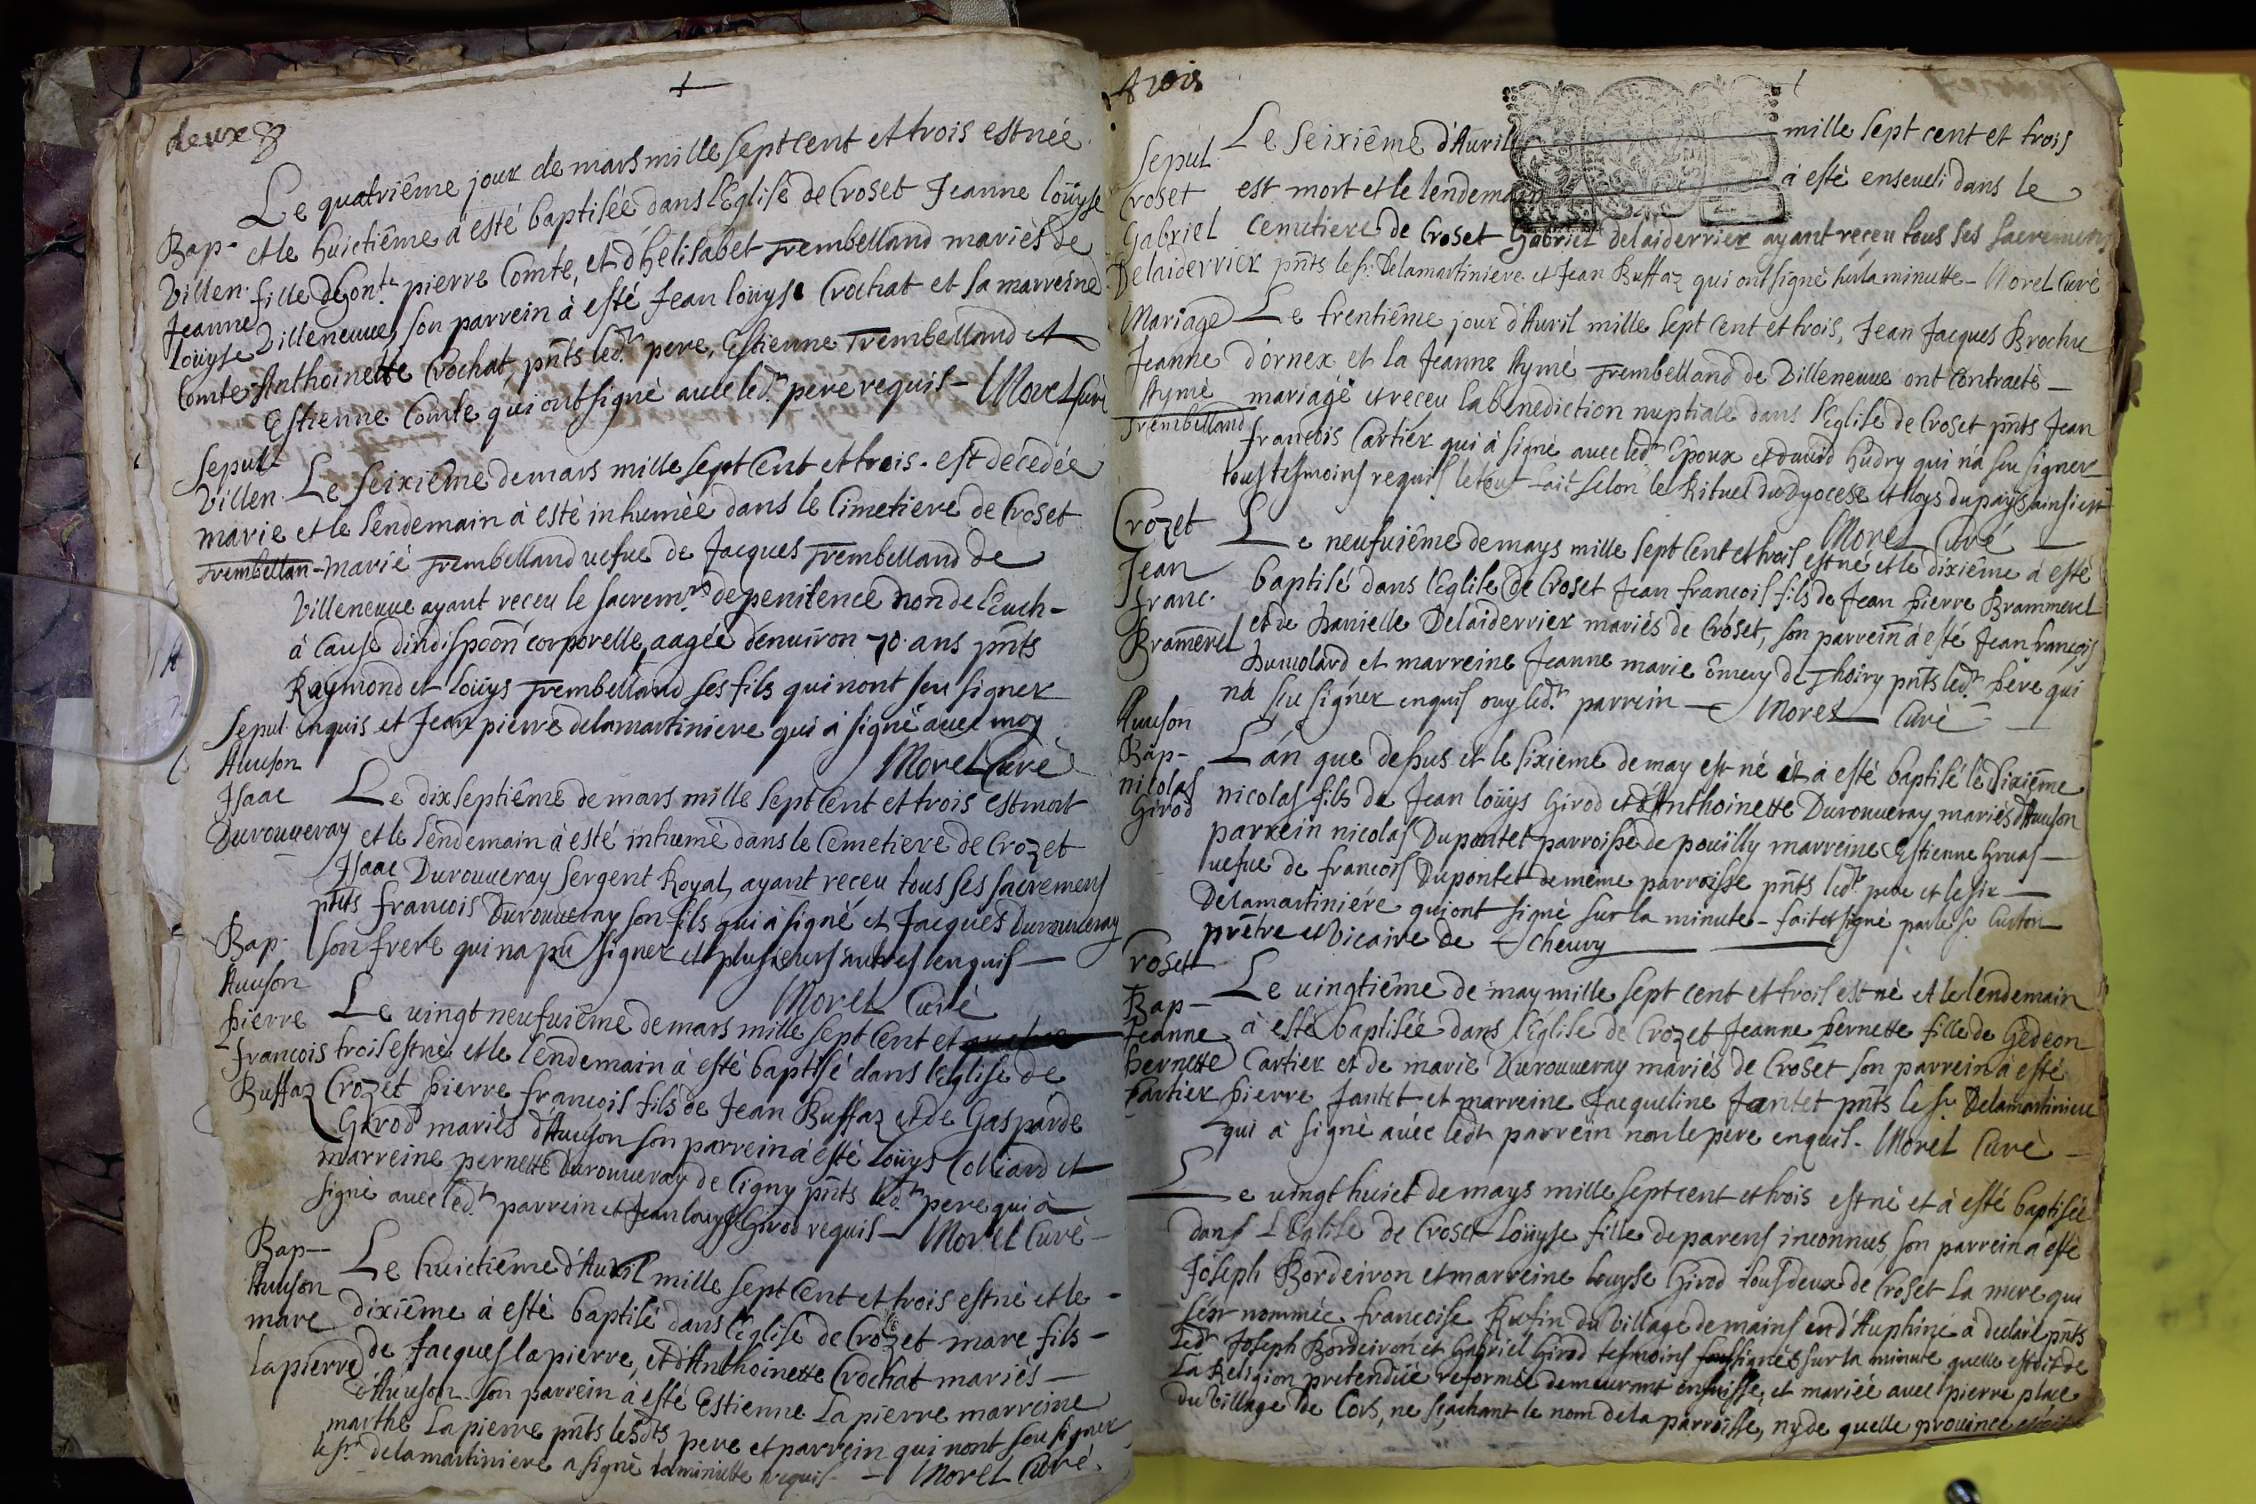 deux
Le quatriême jour de mars mille sept cent et trois est née
Bap- et le huictiême a esté baptisée dans l'Eglise de Croset Jeanne loüyse
Villen. fille d'hon.te pierre Comte, et d'hélisabet Trembelland mariés de
Jeanne Villeneuve, son parrein à esté Jean loüys Crochat et sa marreine
loüyse
Comte Anthoinette Crochat, pnts led.t pere, Estienne Trembelland et
Estienne Comte qui ont signé avec led.t pere requis - Morel Curé
Sepul-
Villen. Le seixiême de mars mille sept cent et trois. est decedée
marie et le lendemain à esté inhumée dans le Cimetiere de Croset
Trembellan- marie Trembelland vefue de Jacques Trembelland de
Villeneuve ayant receu le sacrem.t de penitence non de l'Euch-
à cause d'indispoõn corporelle, aagée d'enuiron 70. ans pnts
Raymond et loüys Trembelland ses fils qui n'ont sçu signer
Sepul- enquis et Jean pierre delamartiniere qui à signé avec moy
Auuson Morel Curé
Isaac Le dixseptiême de mars mille sept cent et trois est mort
Durouueray et le lendemain à esté inhumé dans le Cemetiere de Crozet
Isaac Durouueray sergent Royal, ayant receu tous ses sacremens
pnts Francois Durouueray son fils qui à signé, et Jacques Durouueray
Bap- son frere qui na pû signer et plusieurs autres enquis —
Auuson Morel Curé
pierre Le uingt neufuiême de mars mille sept cent et
francois trois est né et le lendemain à esté baptisé dans l'Eglise de
Buffaz Crozet pierre francois fils de Jean Buffaz et de Gasparde
Girod mariés d'Auuson son parrein à esté loüys Colliard et
marreine pernette Durouueray de Cigny pnts led.t pere qui à
signé avec led.t parrein et Jean louys Girod requis — Morel Curé
Bap— Le huictiême d'Auril mille sept cent et trois est né et le
Auuson dixiême à esté baptisé dans l'Eglise de Crozet marc fils-
marc
lapierre de Jacques lapierre, et d'Anthoinette Crochat mariés —
d'Auuson. son parrein à esté Estienne Lapierre marreine
marthe Lapierre pnts lesdts pere et parrein qui n'ont sçu signer
le Sr. delamartiniere a signé la minutte requis — Morel Curé.
trois
Le Seixiême d'Auril mille sept cent et trois
Sepul.
Croset est mort et le lendemain à esté enseueli dans le
Gabriel cemetiere de Croset Gabriel delaiderrier ayant réçeu tous ses sacremens
Delaiderrier pnts le sr. Delamartiniere et Jean Buffaz qui ont signé sur la minutte - Morel Curé
Mariage Le trentiême jour d'Auril mille sept cent et trois, Jean Jacques Brochu
Jeanne d'ornex et la Jeanne Aymé Trembelland de Villeneuve ont Contracté —
Aymé mariagé et receu la benediction nuptiale dans l'Eglise de Croset pnts Jean
Trembelland francois Cartier qui à signé avec led.t Epoux et david hudry qui n'a sçu signer
tous tesmoins requis le tout fait selon le Rituel du Dyocese et loys du pays ainsi est
Morel Curé
Crozet Le neufuiême de mays mille sept cent et trois est né et le dixiême à esté
Jean baptisé dans l'Eglise de Croset Jean francois fils de Jean pierre Brammerel
franc.
Bramerel et de Danielle Delaiderrier mariés de Croset, son parrein à esté Jean francois
Dumolard et marreine Jeanne marie Emery de Thoiry pnts led.t pere qui
na sçu signer enquis ouy led.t parrein — Morel Curé
Auuson
Bap- L'án que dessus et le sixieme de may est né et à esté baptisé le dixiême
nicolas nicolas fils de Jean loüys Girod et d'Anthoinette Durouueray mariés d'Auuson
Girod parrein nicolas Dupontet parroisse de pouïlly marreine Estienne Gruas —
uefue de francois Dupontet de même parroisse pnts led.t pere et le sir —
Delamartiniére qui ont signé sur la minute - fait et signé par le Sr. Curton
prêtre et Vicaire de — Cheury
Croset Le uingtiême de may mille sept cent et trois est né et le lendemain
Bap—
Jeanne à esté baptisée dans l'Eglise de Crozet Jeanne pernette fille de Gédeon
pernette Cartier et de marie Durouueray mariés de Croset son parrein à esté
Cartier pierre Jantet et marreine Jacqueline Jantet pnts le Sr. Delamartiniere
qui à signé avéc ledt. parrein non le pére enquis. Morel Curé —
Le uingt huict de mays mille sept cent et trois est né et à esté baptisée
dans l'Eglise de Croset Loüyse fille de parens inconnus, son parrein a esté
Joseph Bordeiron et marreine louyse Girod tous deux de Croset La mere qui
s'est nommée francoise Rufin du Village de mains en d'Auphiné a declaré pnts
led.t Joseph Bordeiron et Gabriel Girod tesmoins soussignés sur la minute quelle estoit de
La Religion pretendüe reformée demeurant en suisse, et mariée avec pierre place
du Village de Cors, ne sçachant le nom de la parroisse, ny de quelle prouince estoit